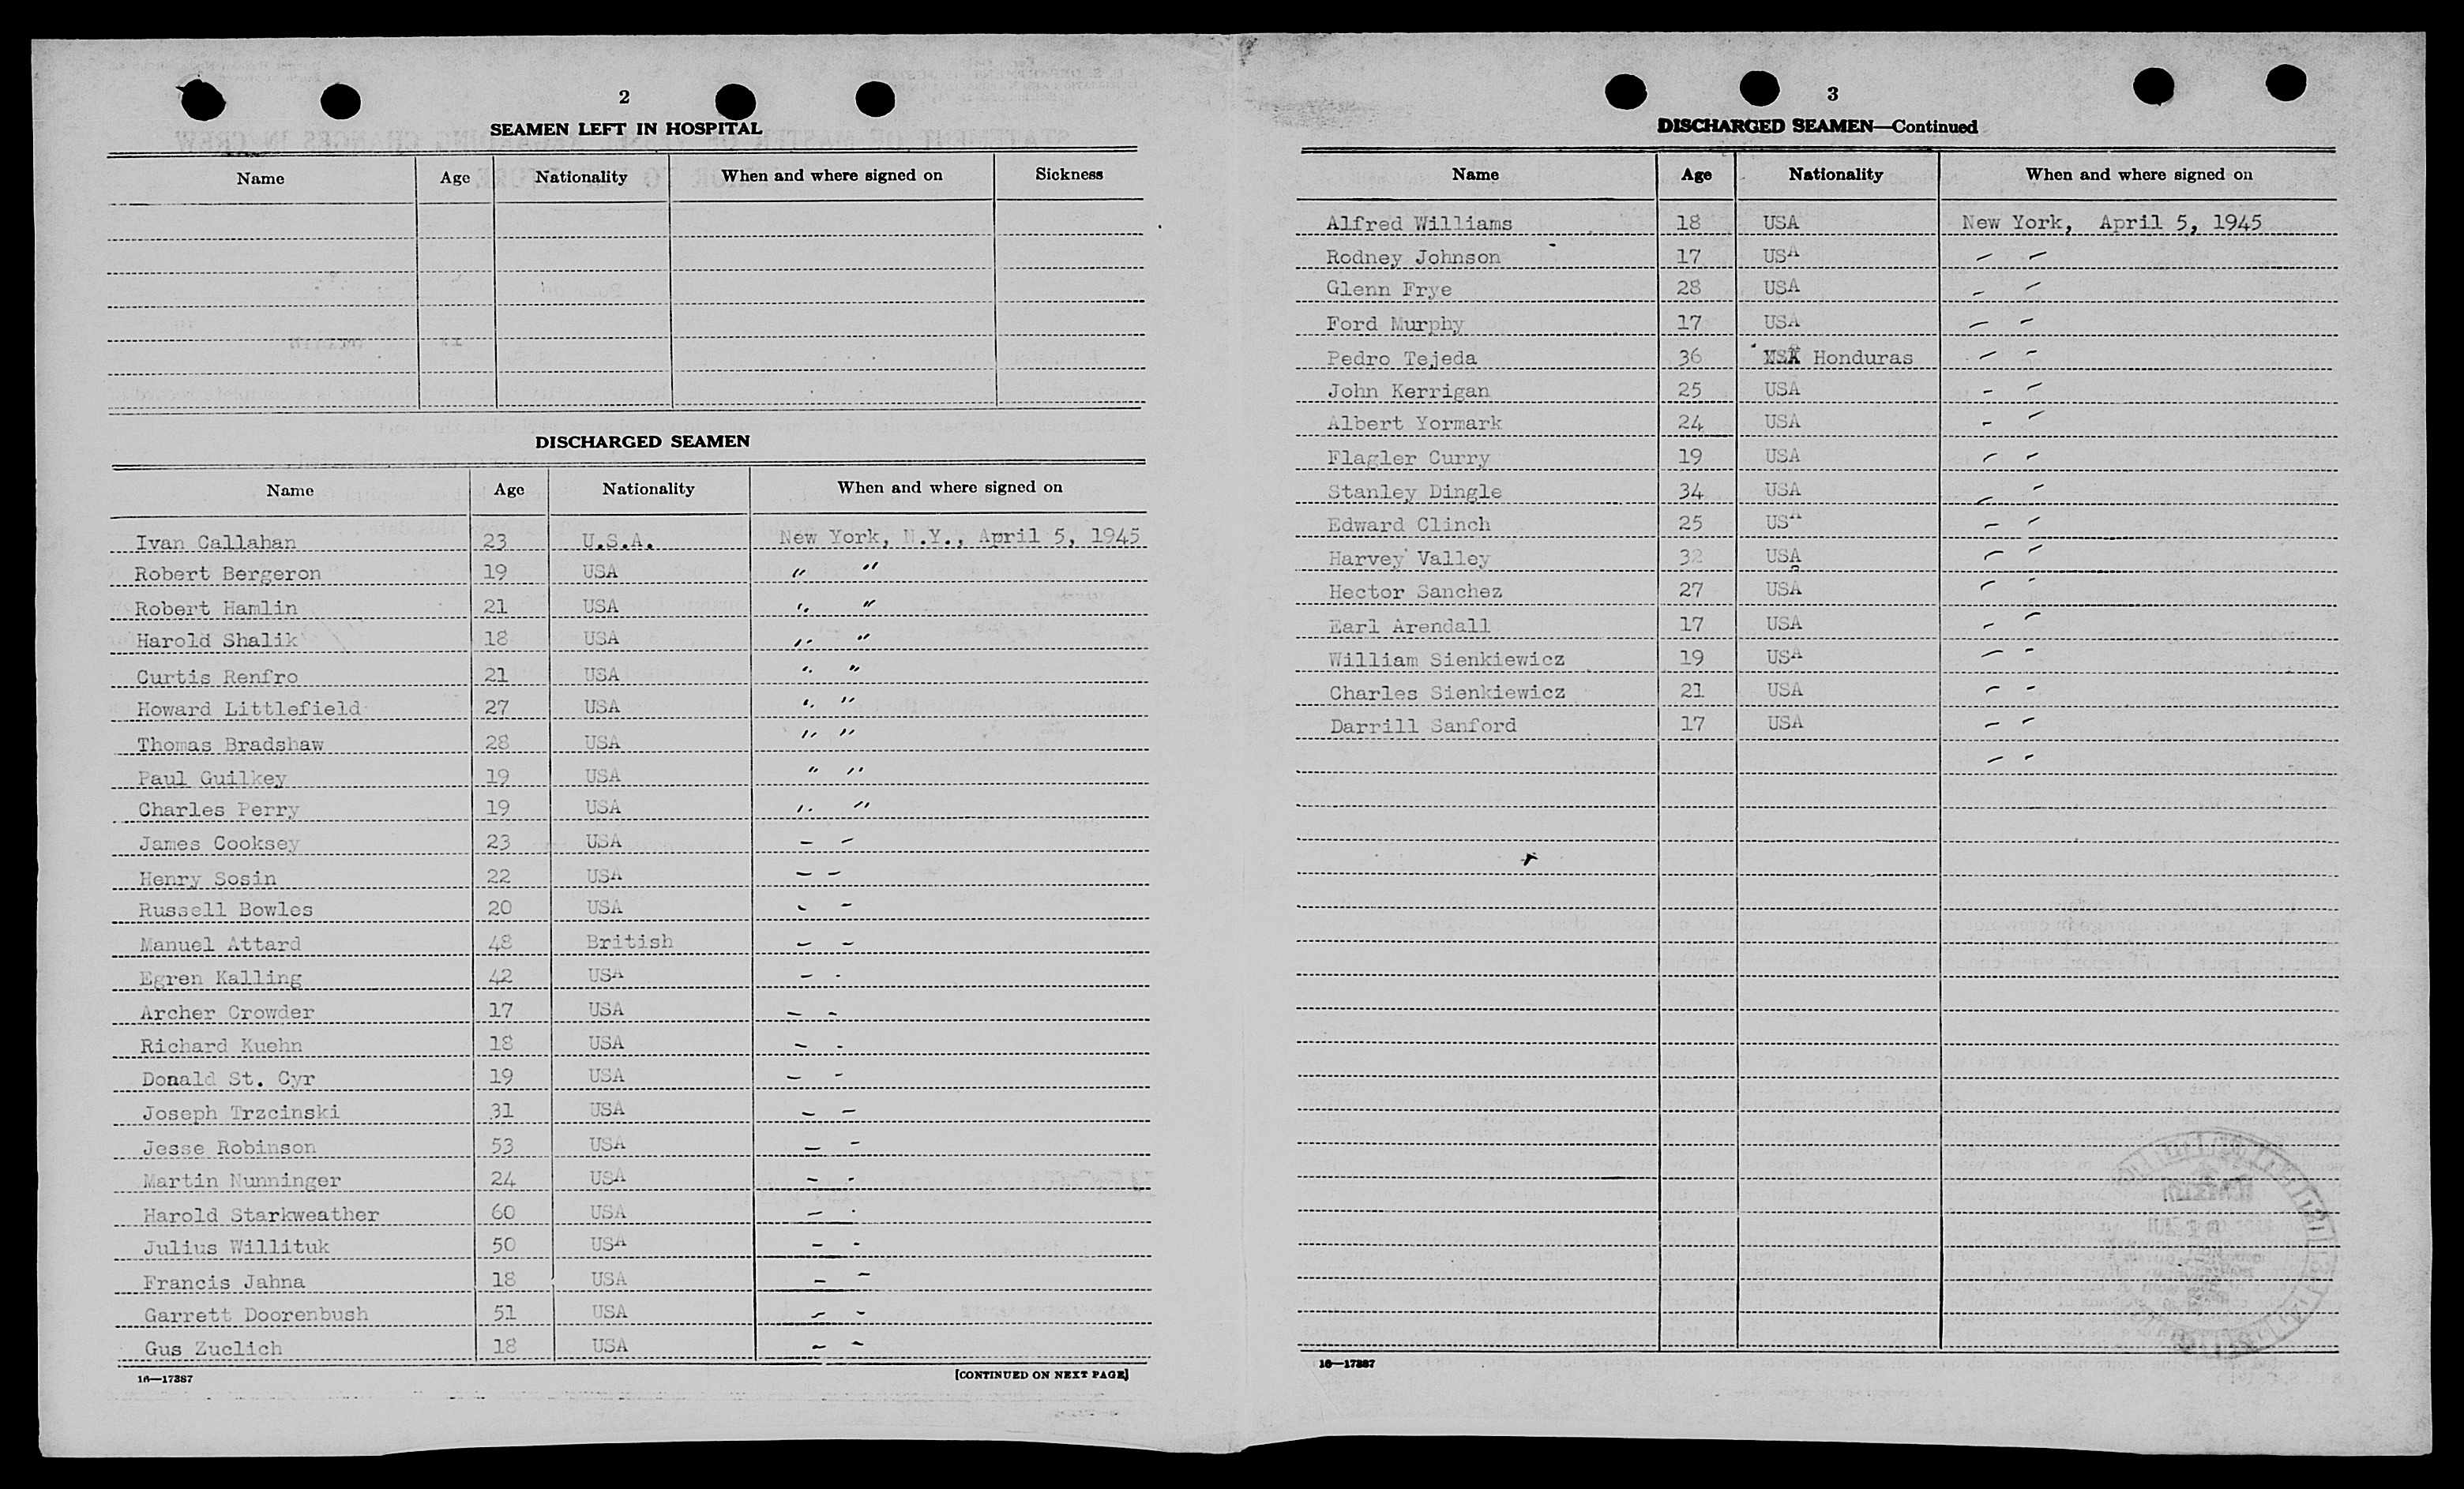 2
SEAMEN LEFT IN HOSPITAL
Name Age Nationality When and where signed on Sickness
DISCHARGED SEAMEN
Name Age Nationality When and where signed on
Ivan Callahan 23 U.S.A. New York, N.Y., April 5, 1945
Robert Bergeron 19 USA " "
Robert Hamlin 21 USA " "
Harold Shalik 18 USA " "
Curtis Renfro 21 USA " "
Howard Littlefield 27 USA " "
Thomas Bradshaw 28 USA " "
Paul Guilkey 19 USA " "
Charles Perry 19 USA " "
James Cooksey 23 USA - -
Henry Sosin 22 USA - -
Russell Bowles 20 USA - -
Manuel Attard 48 British - -
Egren Kalling 42 USA - -
Archer Crowder 17 USA - -
Richard Kuehn 18 USA - -
Donald St. Cyr 19 USA - -
Joseph Trzcinski 31 USA - -
Jesse Robinson 53 USA - -
Martin Nunninger 24 USA - -
Harold Starkweather 60 USA - -
Julius Willituk 50 USA - -
Francis Jahna 18 USA - -
Garrett Doorenbush 51 USA - -
Gus Zuclich 18 USA - -
16—17387 [CONTINUED ON NEXT PAGE]
3
DISCHARGED SEAMEN—Continued
Name Age Nationality When and where signed on
Alfred Williams 18 USA New York, April 5, 1945
Rodney Johnson 17 USA - -
Glenn Frye 28 USA - -
Ford Murphy 17 USA - -
Pedro Tejeda 36 Honduras - -
John Kerrigan 25 USA - -
Albert Yormark 24 USA - -
Flagler Curry 19 USA - -
Stanley Dingle 34 USA - -
Edward Clinch 25 USA - -
Harvey Valley 32 USA - -
Hector Sanchez 27 USA - -
Earl Arendall 17 USA - -
William Sienkiewicz 19 USA - -
Charles Sienkiewicz 21 USA - -
Darrill Sanford 17 USA - -
- -
16—17387